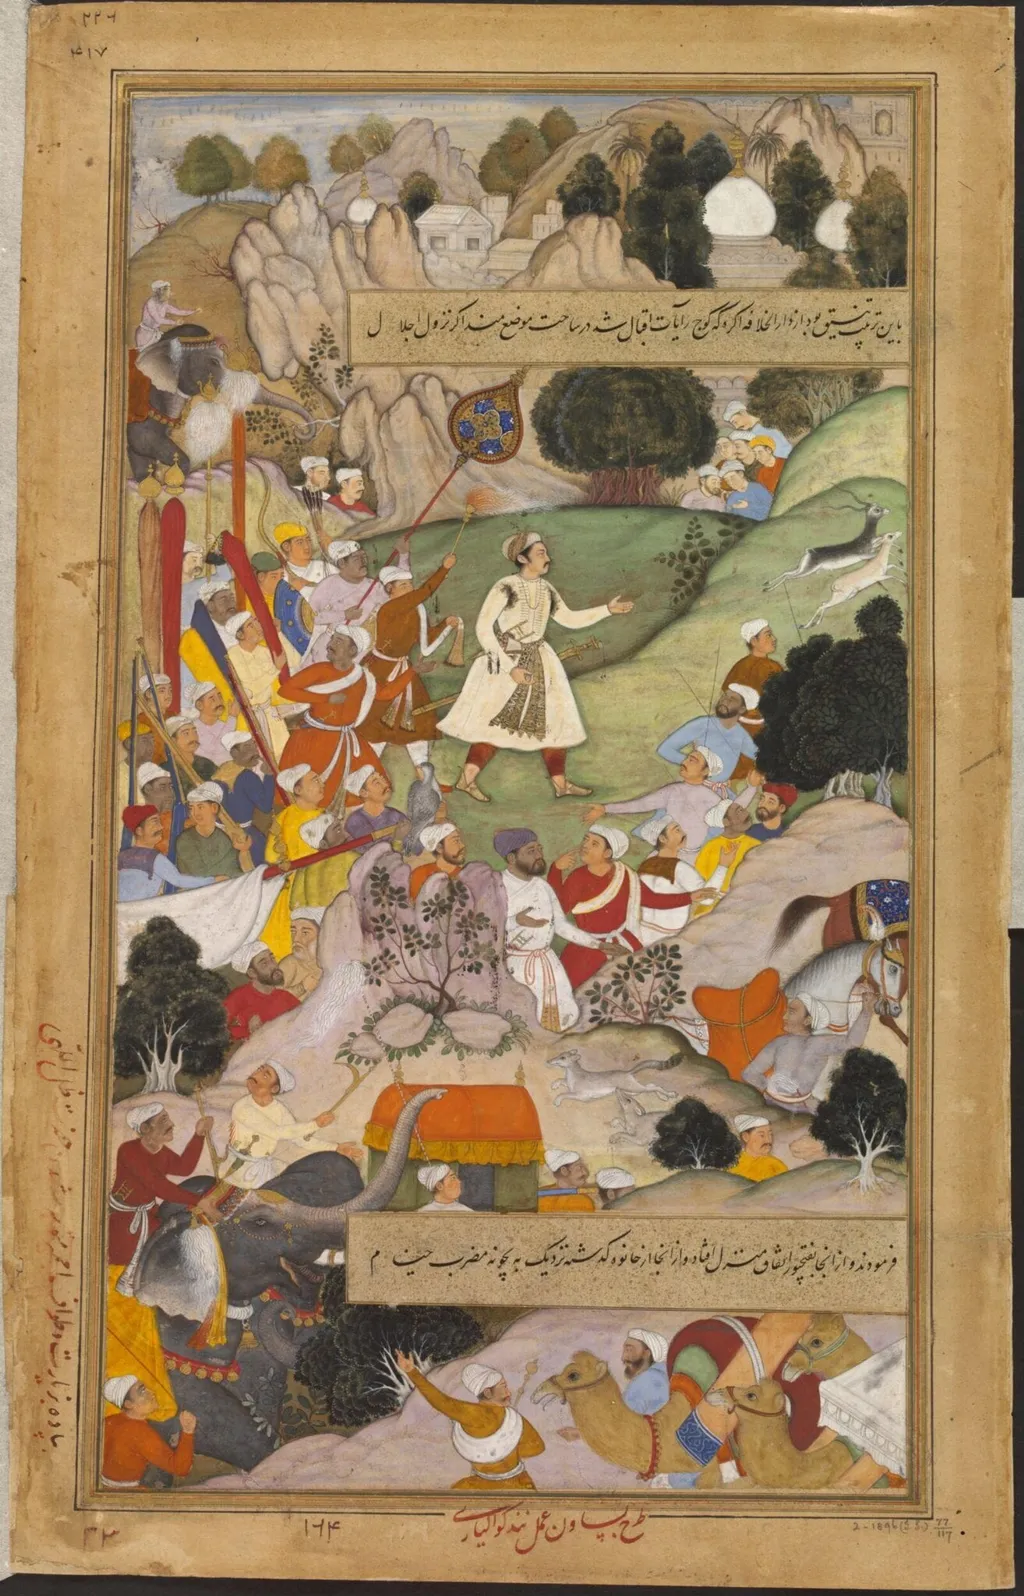 ۴۱۷
باین ترتیب تنسیق بود از دارالخلافه اکره که کوچ رایات اقبال شد در ساحت موضع منداکر نزول اجلال
فرمودند و از آنجا بفتحپور اتفاق منزل افتاد و از آنجا از خانوه گذشته نزدیک به پچونه مضرب خیام
پیاده بزیارت و طواف حضرت ظل الهی
طرح بساون عمل نند کوالیاری
۳۳
۱۶۴
2-1896 (I.S.) 77/117